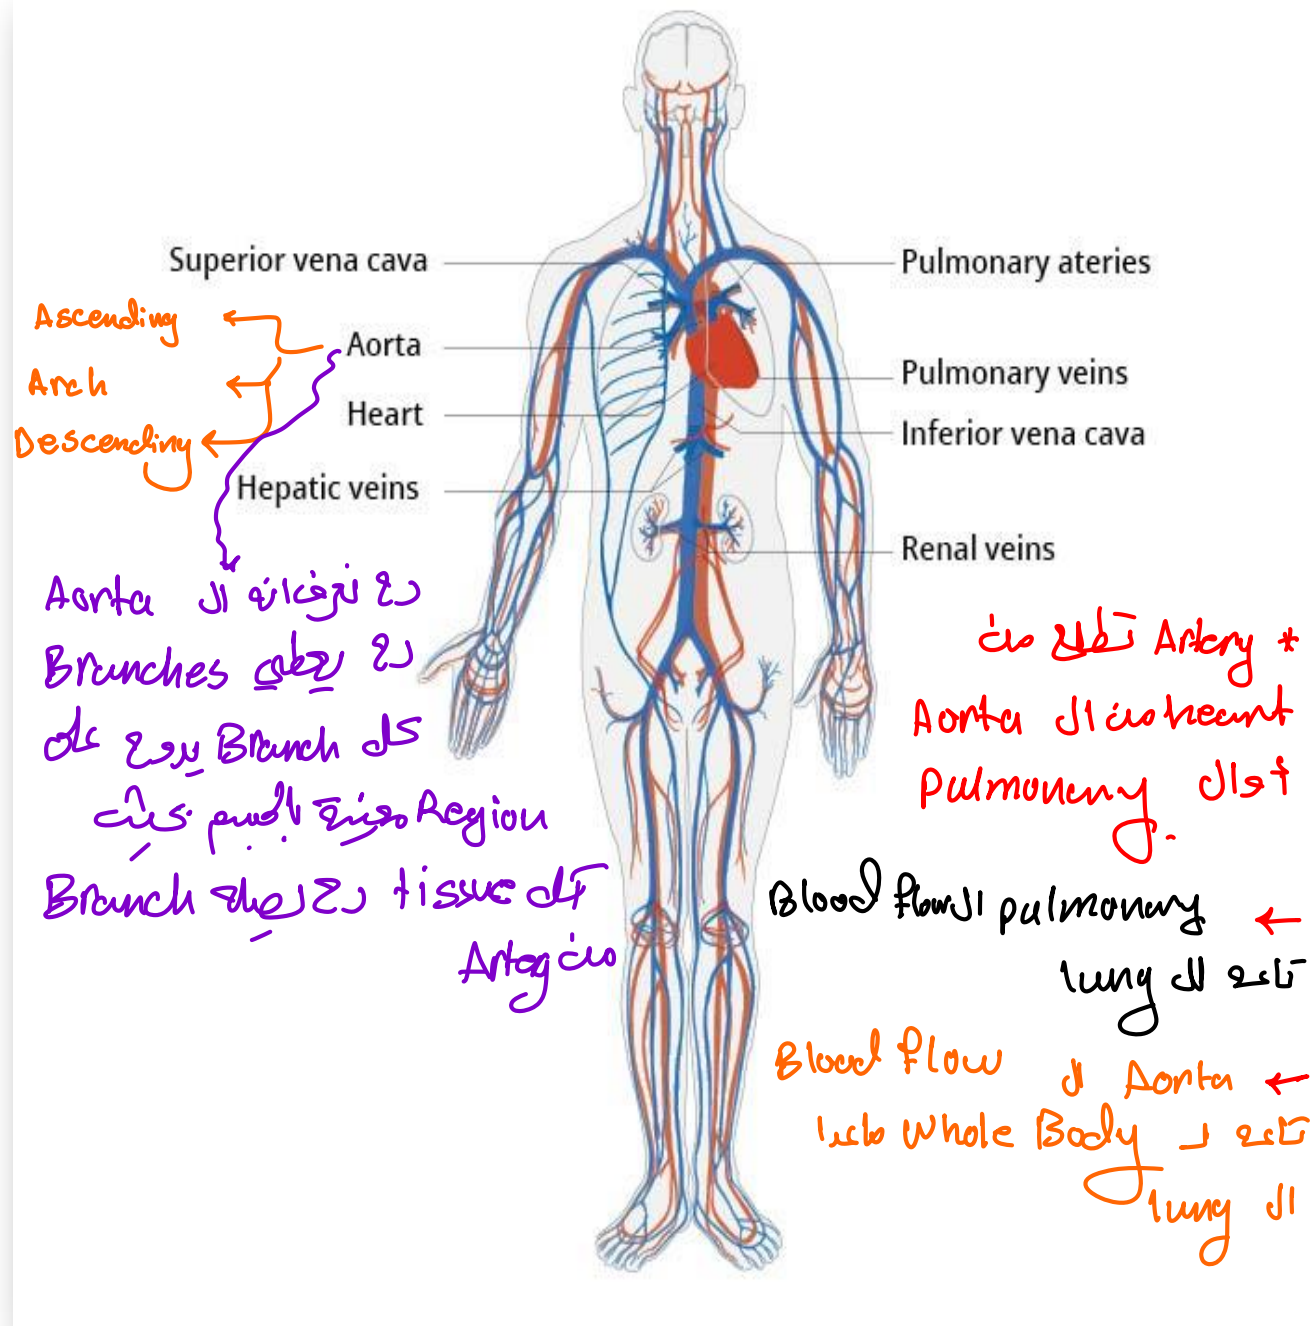 Superior vena cava
Aorta
Heart
Hepatic veins
Pulmonary ateries
Pulmonary veins
Inferior vena cava
Renal veins
Ascending
Arch
Descending
رح ال Aorta
رح يعطي Branches
كل Branch يروح على
Region معينة بالجسم بحيث
كل tissue رح يصله Branch
من Artery
* Artery تطلع من
heart من ال Aorta
أو ال Pulmonary
← pulmonary ال Blood flow
تاعه لل lung
← Aorta ال Blood flow
تاعه ل Whole Body ماعدا
ال lung